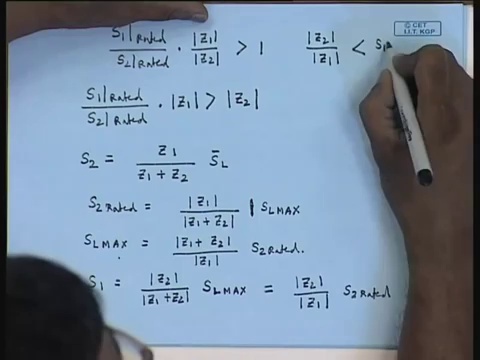 S1|Rated / S2|Rated · |Z1| / |Z2| > 1 |Z2| / |Z1| < S1R
© CET I.I.T. KGP
S1|Rated / S2|Rated · |Z1| > |Z2|
S2 = Z1 / Z1 + Z2 S̄L
S2 Rated = |Z1| / |Z1 + Z2| | SLMAX
SLMAX = |Z1 + Z2| / |Z1| S2 Rated.
S1 = |Z2| / |Z1 + Z2| SLMAX = |Z2| / |Z1| S2 Rated